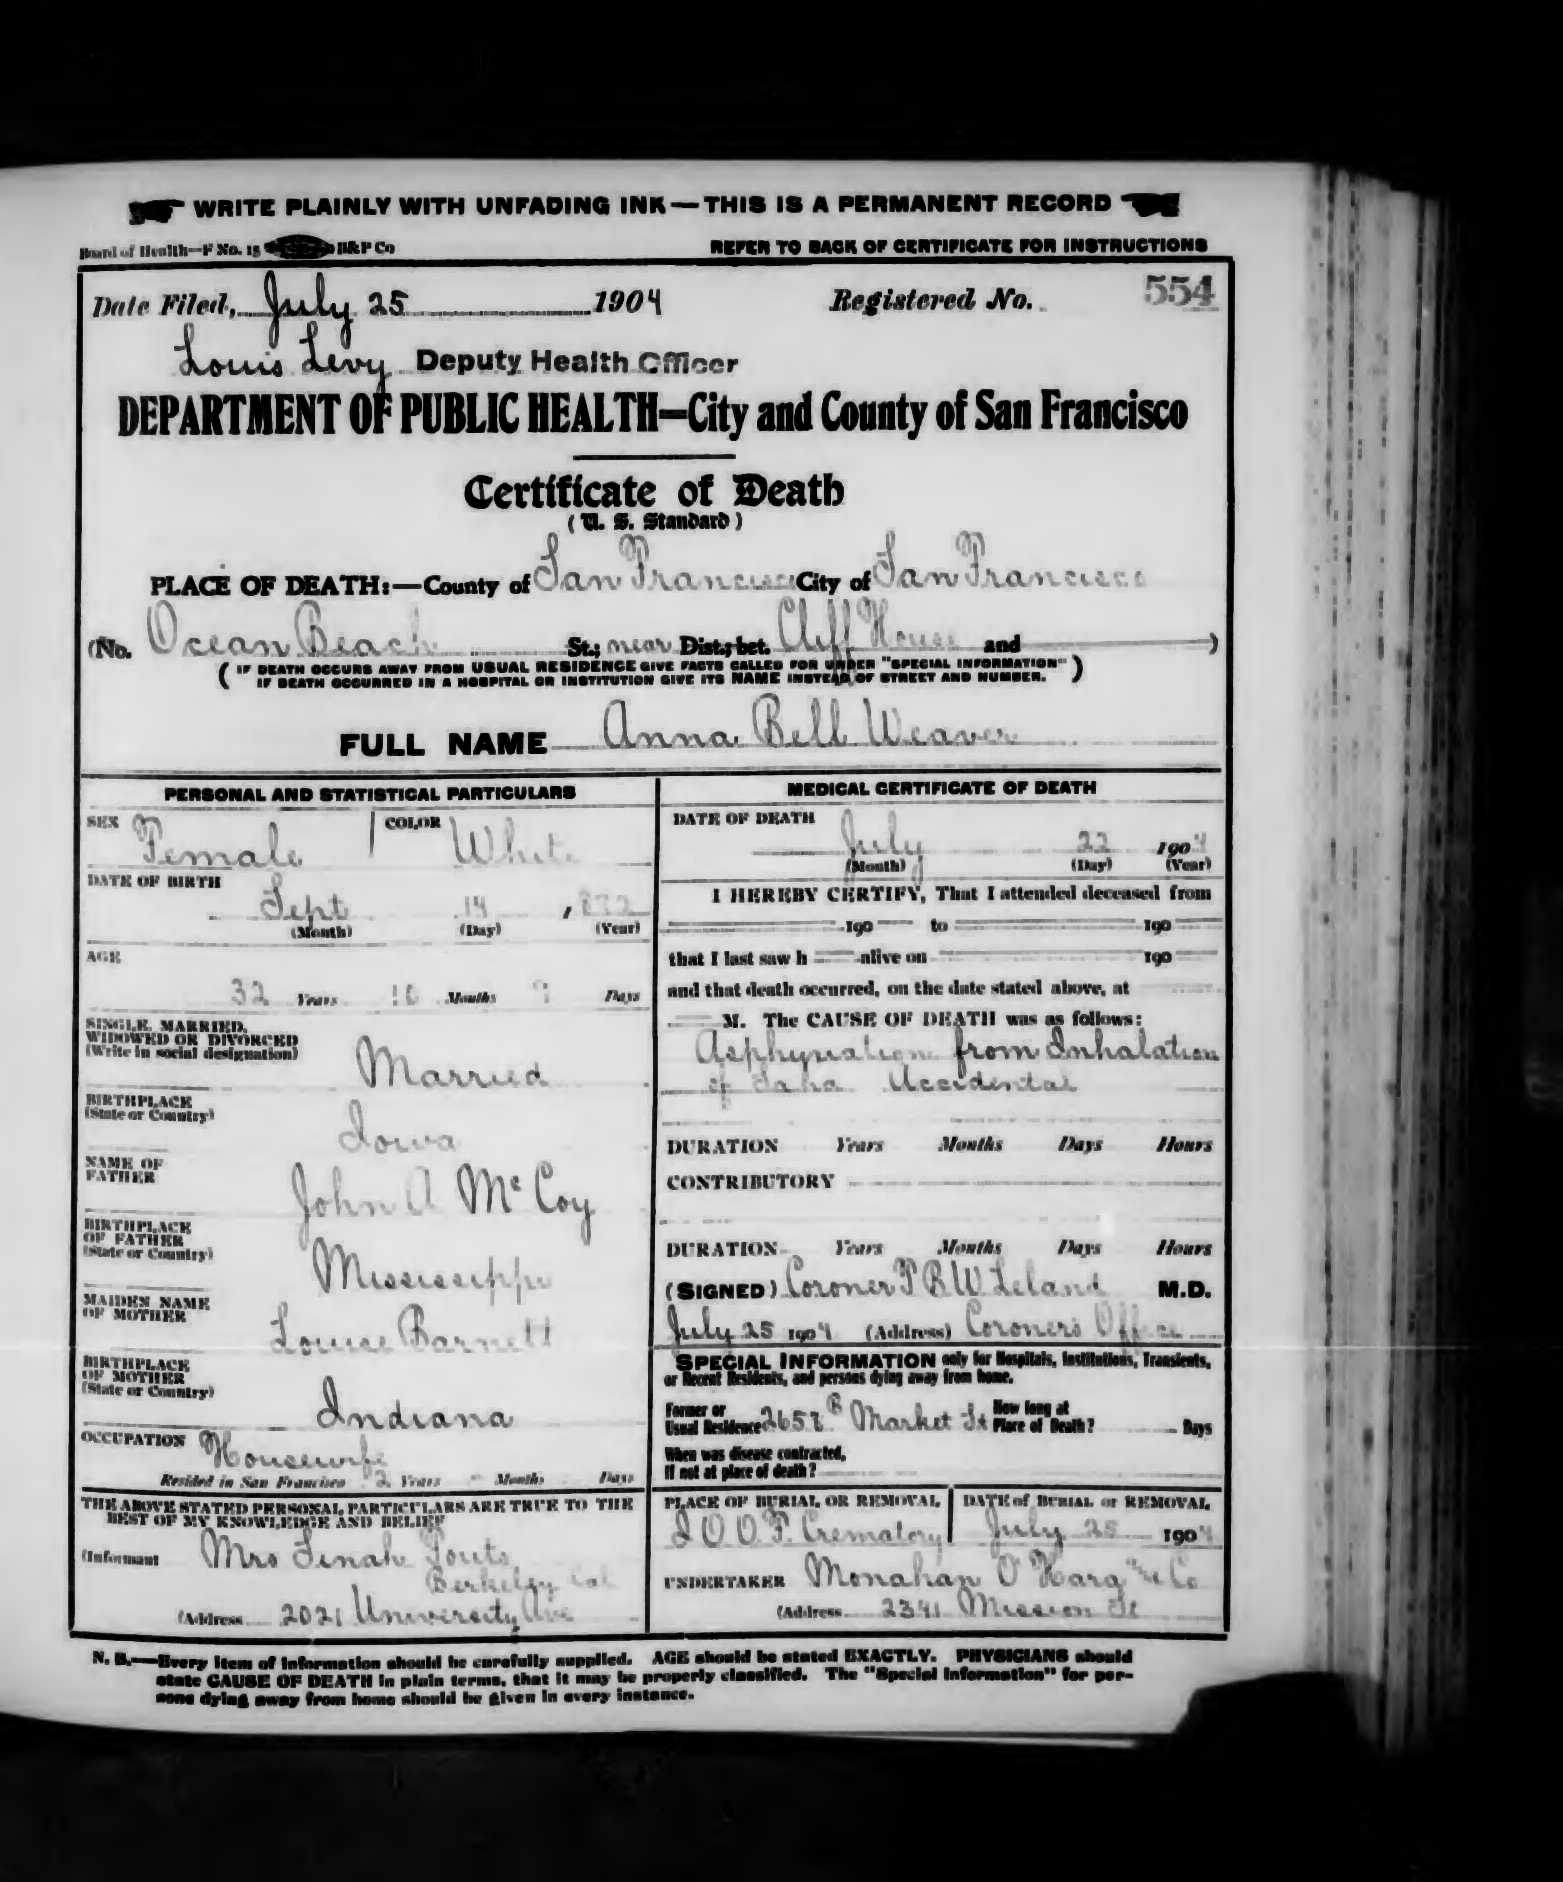 WRITE PLAINLY WITH UNFADING INK — THIS IS A PERMANENT RECORD
Board of Health—F No. 15 H&P Co
REFER TO BACK OF CERTIFICATE FOR INSTRUCTIONS
Date Filed, July 25 1904 Registered No. 554
Louis Levy Deputy Health Officer
DEPARTMENT OF PUBLIC HEALTH—City and County of San Francisco
Certificate of Death
(U. S. Standard)
PLACE OF DEATH:—County of San Francisco City of San Francisco
(No. Ocean Beach St.; near Dist.; bet. Cliff House and )
( IF DEATH OCCURS AWAY FROM USUAL RESIDENCE GIVE FACTS CALLED FOR UNDER "SPECIAL INFORMATION"
IF DEATH OCCURRED IN A HOSPITAL OR INSTITUTION GIVE ITS NAME INSTEAD OF STREET AND NUMBER. )
FULL NAME Anna Bell Weaver
PERSONAL AND STATISTICAL PARTICULARS
SEX Female COLOR White
DATE OF BIRTH
Sept 14 , 872
(Month) (Day) (Year)
AGE
32 Years 10 Months Days
SINGLE, MARRIED,
WIDOWED OR DIVORCED
(Write in social designation)
Married
BIRTHPLACE
(State or Country)
Iowa
NAME OF
FATHER
John A McCoy
BIRTHPLACE
OF FATHER
(State or Country)
Mississippi
MAIDEN NAME
OF MOTHER
Louise Barnett
BIRTHPLACE
OF MOTHER
(State or Country)
Indiana
OCCUPATION Housewife
Resided in San Francisco 2 Years - Months Days
THE ABOVE STATED PERSONAL PARTICULARS ARE TRUE TO THE
BEST OF MY KNOWLEDGE AND BELIEF
(Informant Mrs Linah Pouts
Berkeley Cal
(Address 2021 University Ave
MEDICAL CERTIFICATE OF DEATH
DATE OF DEATH
July 22 1904
(Month) (Day) (Year)
I HEREBY CERTIFY, That I attended deceased from
190 to 190
that I last saw h alive on 190
and that death occurred, on the date stated above, at
M. The CAUSE OF DEATH was as follows:
Asphyxiation from Inhalation
of Accidental
DURATION Years Months Days Hours
CONTRIBUTORY
DURATION Years Months Days Hours
(SIGNED) Coroner T B W Leland M.D.
July 25 1904 (Address) Coroners Office
SPECIAL INFORMATION only for Hospitals, Institutions, Transients,
or Recent Residents, and persons dying away from home.
Former or
Usual Residence 2658 B Market St
How long at
Place of Death? Days
When was disease contracted,
If not at place of death?
PLACE OF BURIAL OR REMOVAL
I O O F Crematory
DATE of BURIAL or REMOVAL
July 25 1904
UNDERTAKER Monahan O'Hara & Co
(Address 2341 Mission St
N. B.—Every item of information should be carefully supplied. AGE should be stated EXACTLY. PHYSICIANS should
state CAUSE OF DEATH in plain terms, that it may be properly classified. The "Special Information" for per-
sons dying away from home should be given in every instance.